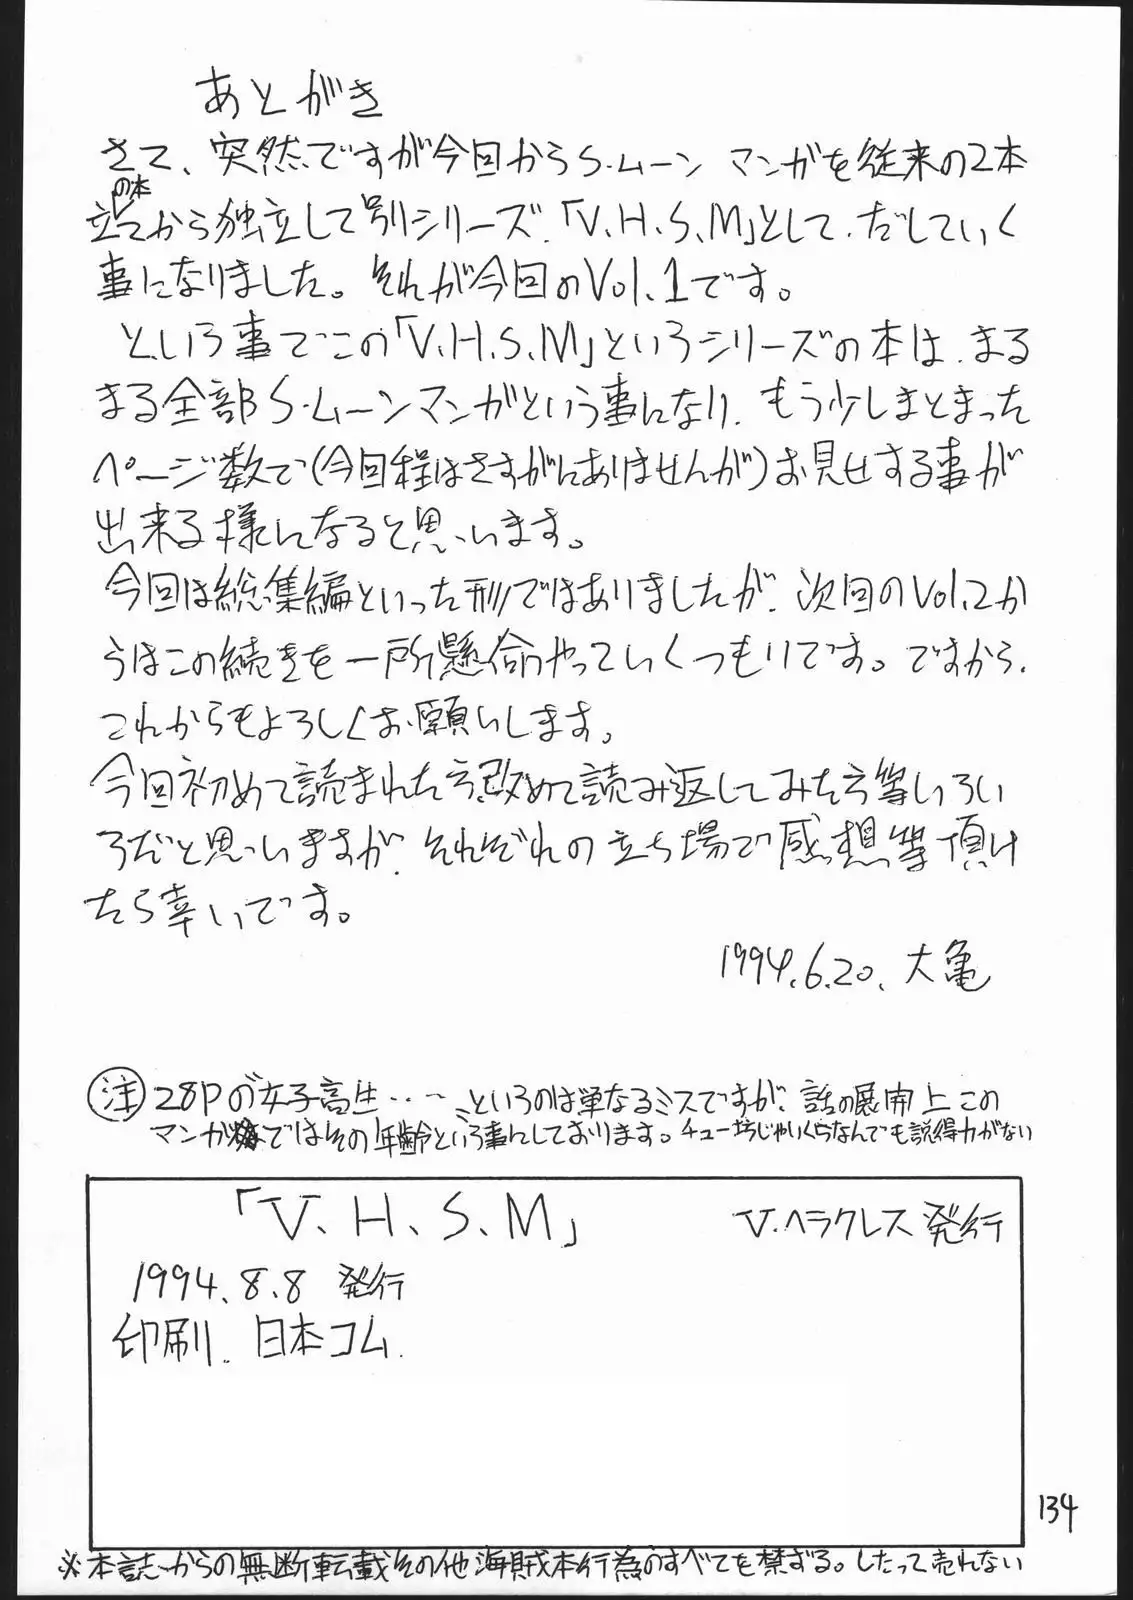 あとがき
さて、突然ですが今回からS.ムーン マンガを従来の2本
の本
立てから独立して別シリーズ.「V.H.S.M」として.だしていく
事になりました。それが今回のVol.1です。
という事でこの「V.H.S.M」というシリーズの本は.まる
まる全部S.ムーンマンガという事になり.もう少しまとまった
ページ数で(今回程はさすがにありませんが)お見せする事が
出来る様になると思います。
今回は総集編といった形ではありましたが.次回のVol.2か
らはこの続きを一所懸命やっていくつもりです。ですから.
これからもよろしくお願いします。
今回初めて読まれた方.改めて読み返してみた方等いろい
ろだと思いますが.それぞれの立ち場で感想等頂け
たら幸いです。
1994.6.20. 大亀
注 28Pの“女子高生・・・〃というのは単なるミスですが.話の展開上この
マンガではその年齢という事にしております。チュー坊じゃいくらなんでも説得力がない
「V.H.S.M」 V.ヘラクレス発行
1994.8.8 発行
印刷. 日本コム.
134
※本誌からの無断転載その他海賊本行為のすべてを禁ずる。したって売れない